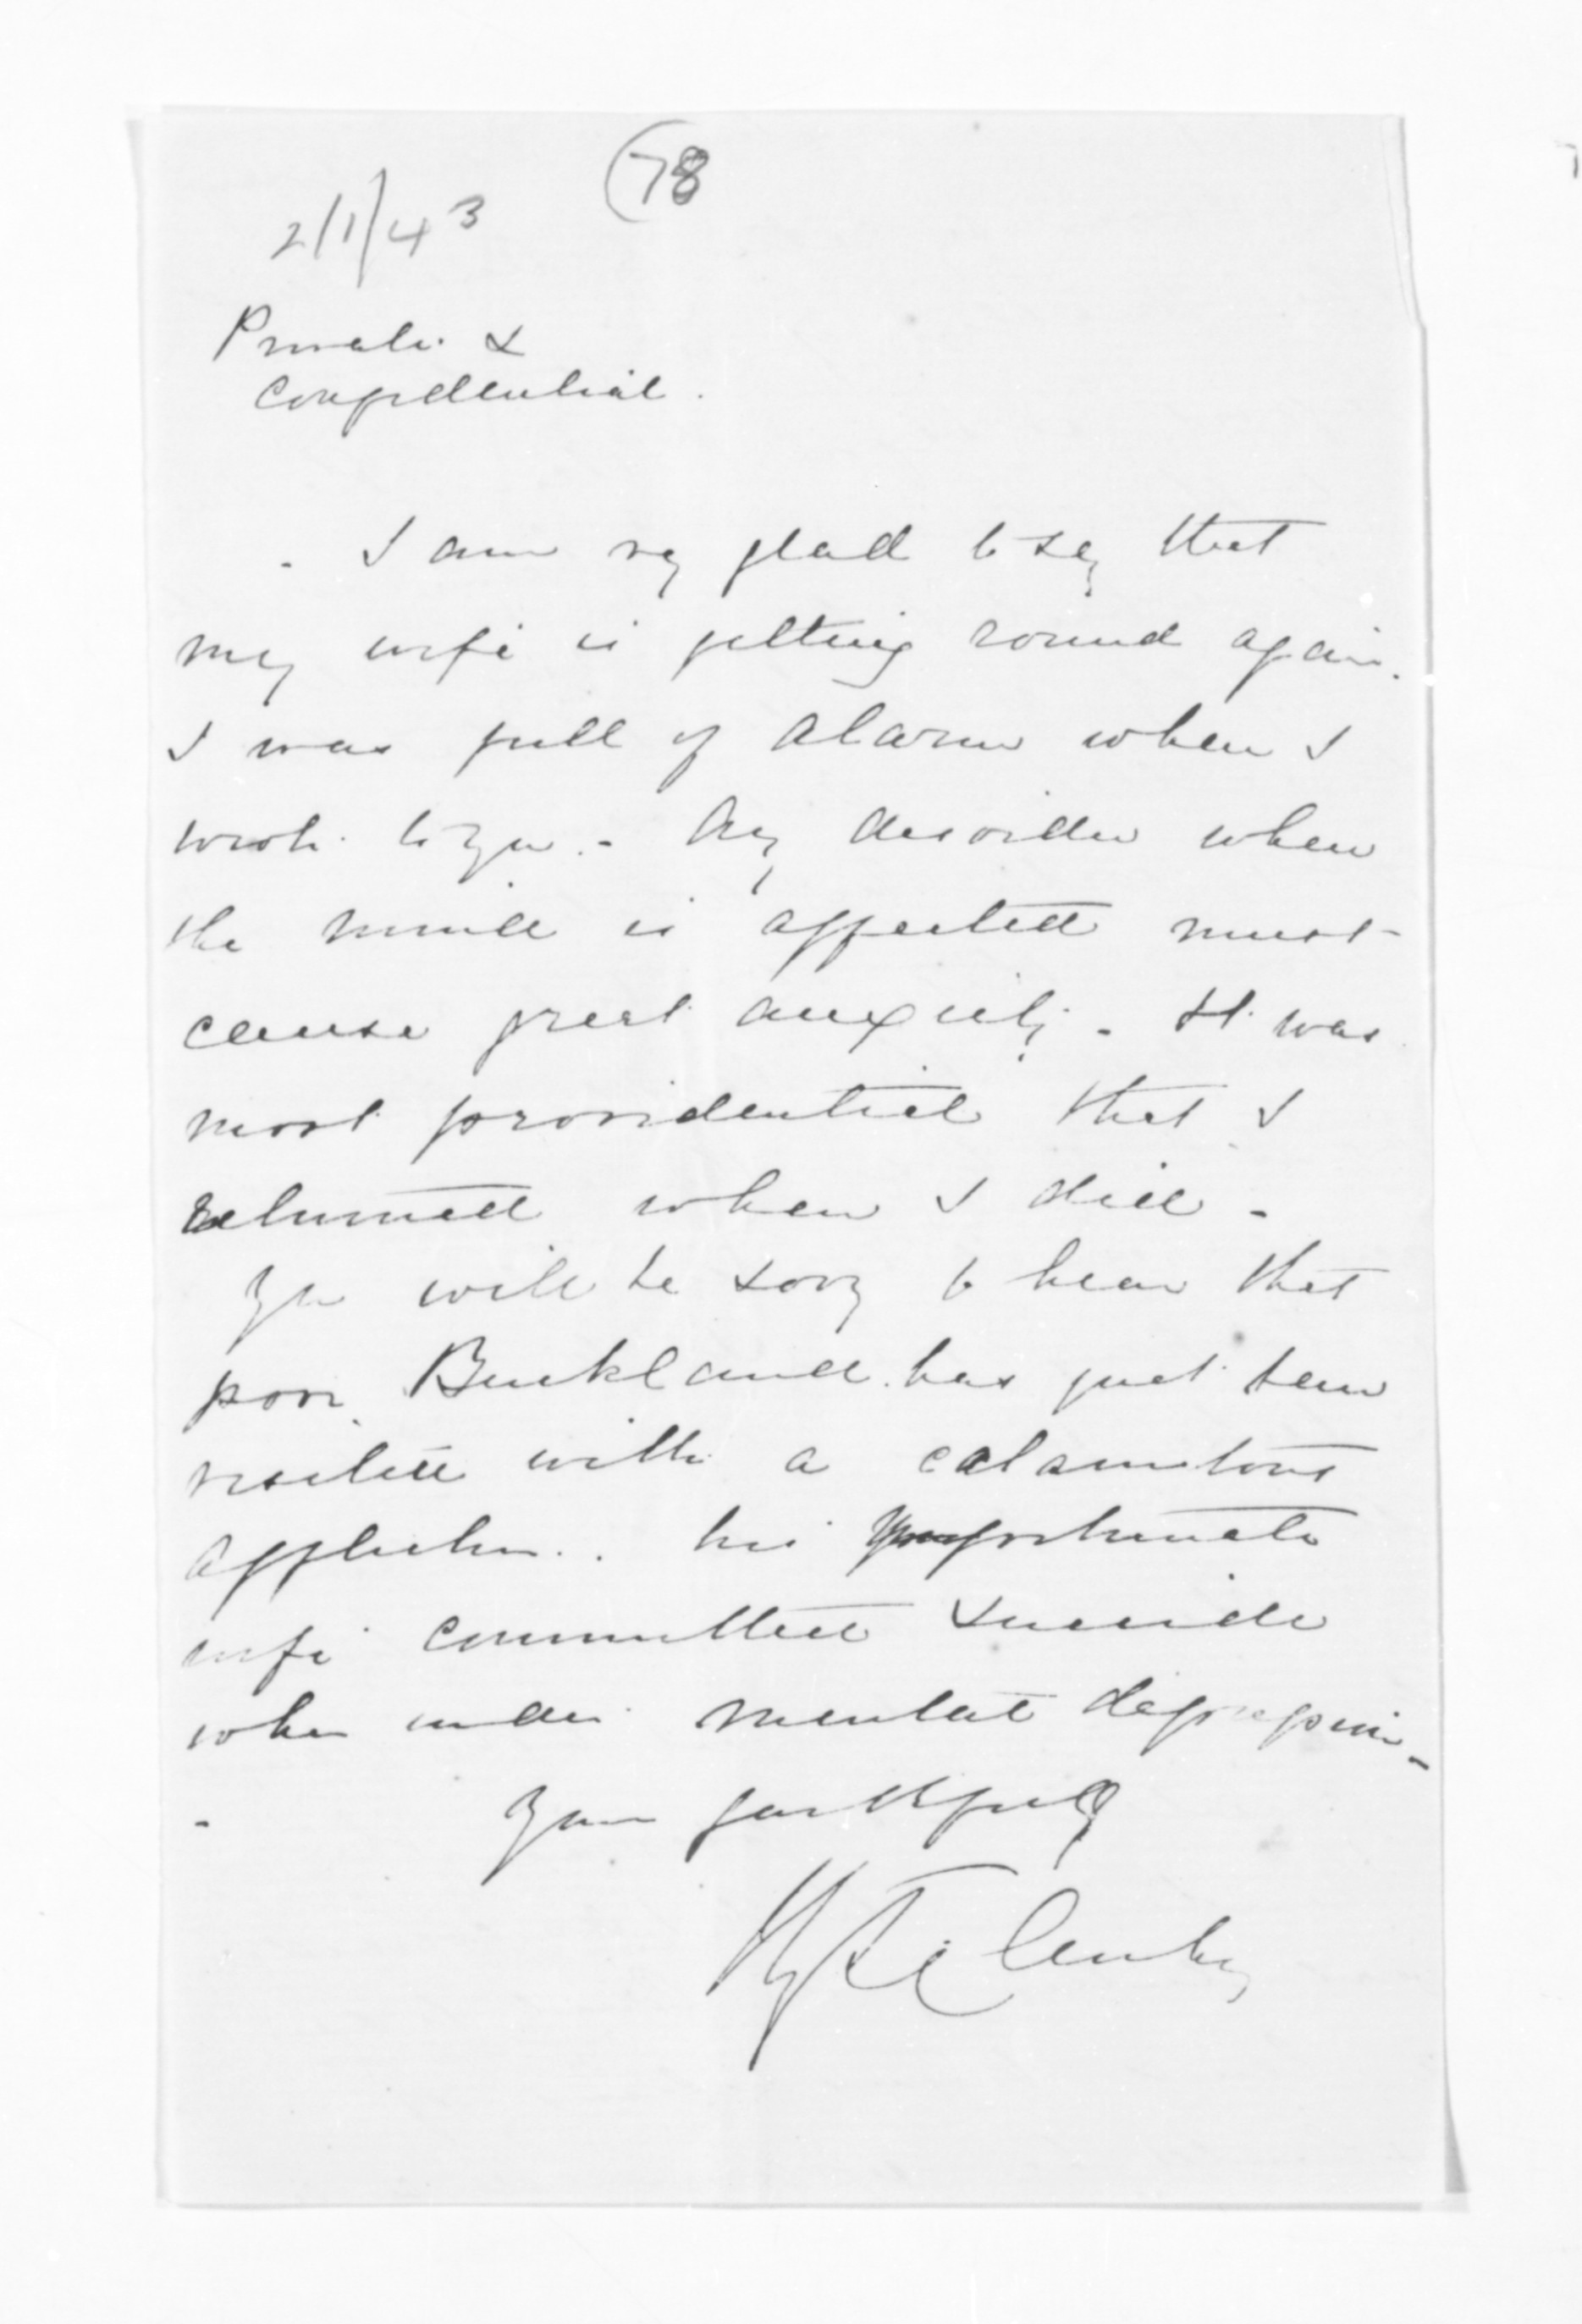 (78
2/1/43
Private &
Confidential.
- I am vy glad to say that
my wife is getting round again.
I was full of alarm when I
wrote to you. - Any disorder when
the mind is affected must
cause great anxiety - It was
most providential that I
returned when I did -
You will be sorry to hear that
poor Buckland has just been
visited with a calamitous
affliction. his unfortunate
wife committed suicide
when under mental depression -
- Your faithfully
H T Clarke